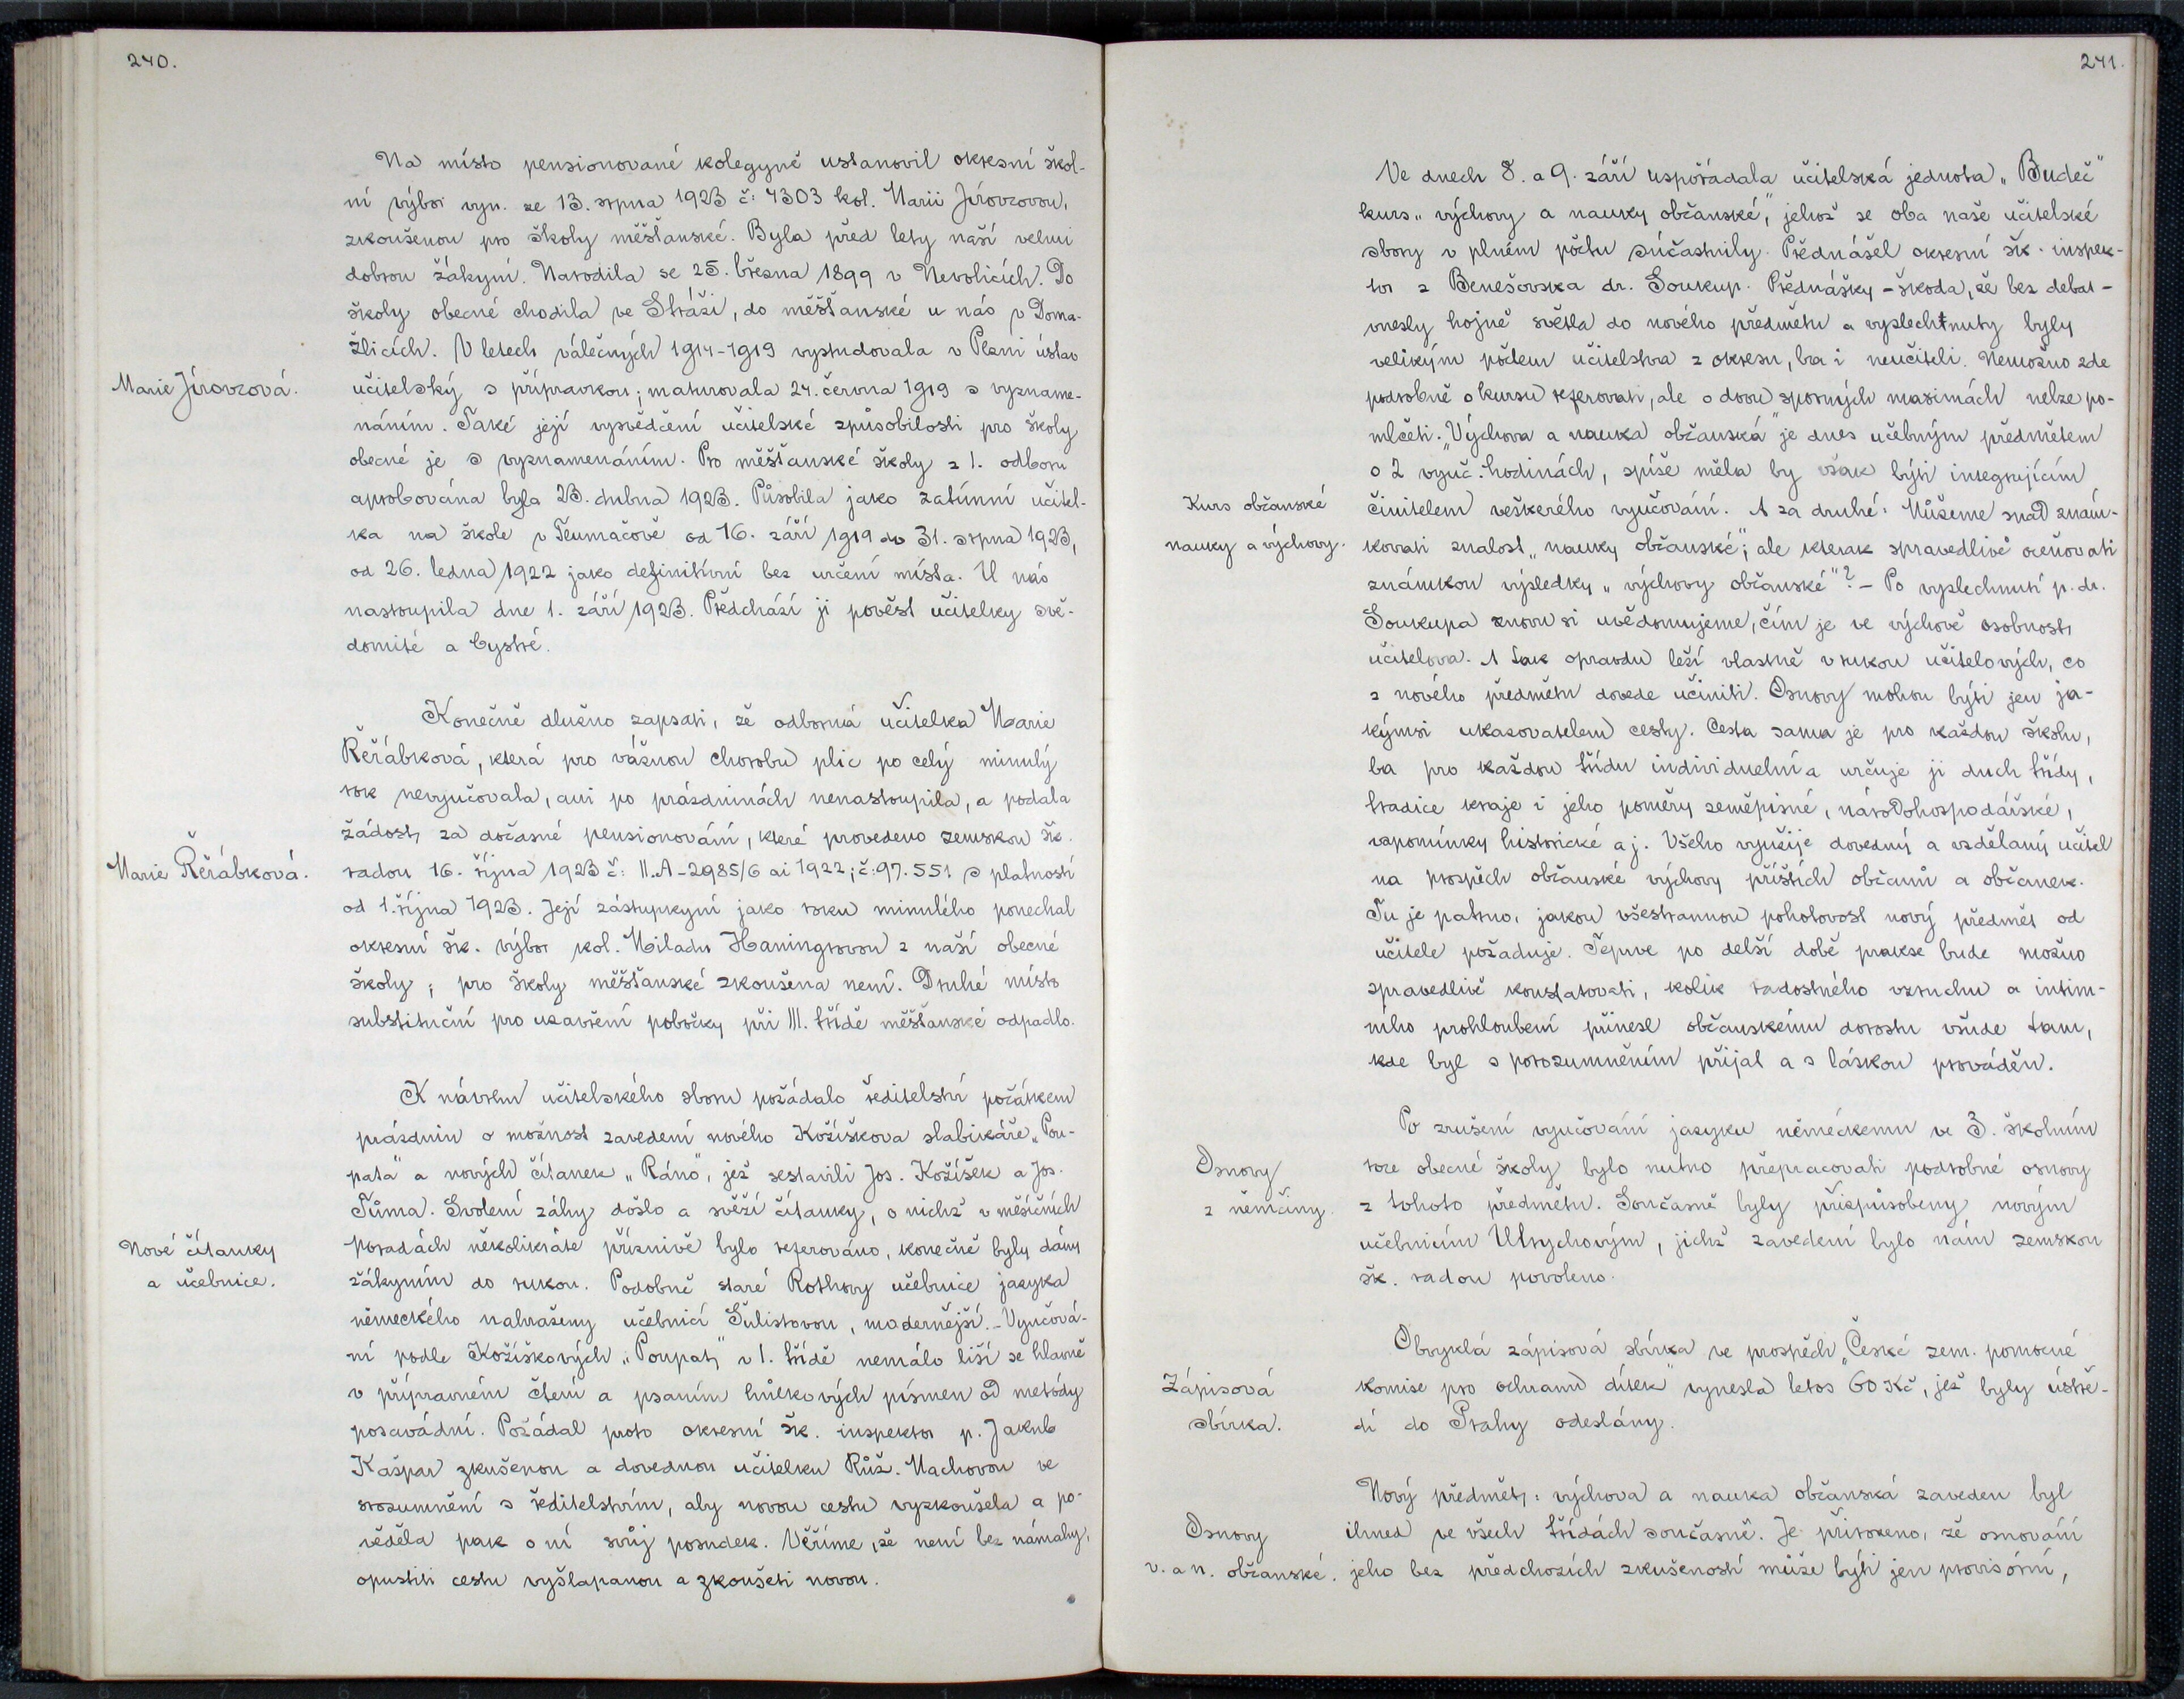 240.
Na místo pensionované kolegyně ustanovil okresní škol-
ní výbor vyn. ze 13. srpna 1923 č: 4303 kol. Marii Jírovcovou,
zkoušenou pro školy měšťanské. Byla před lety naší velmi
dobrou žákyní. Narodila se 25. března 1899 v Nevolicích. Do
školy obecné chodila ve Stráži, do měšťanské u nás v Doma-
žlicích. V letech válečných 1914-1919 vystudovala v Plzni ústav
Marie Jírovcová.
učitelský s přípravkou; maturovala 24. června 1919 s vyzname-
náním. Také její vysvědčení učitelské způsobilosti pro školy
obecné je s vyznamenáním. Pro měšťanské školy z I. odboru
aprobována byla 23. dubna 1923. Působila jako zatímní učitel-
ka na škole v Tlumačově od 16. září 1919 do 31. srpna 1923,
od 26. ledna 1922 jako definitivní bez určení místa. U nás
nastoupila dne 1. září 1923. Předchází ji pověst učitelky svě-
domité a bystré.
Konečně dlužno zapsati, že odborná učitelka Marie
Řeřábková, která pro vážnou chorobu plic po celý minulý
rok nevyučovala, ani po prázdninách nenastoupila, a podala
žádost, za dočasné pensionování, které provedeno zemskou šk.
Marie Řeřábková.
radou 16. října 1923 č: II.A-2985/6 ai 1922; č: 97.551 s platností
od 1. října 1923. Její zástupkyní jako roku minulého ponechal
okresní šk. výbor kol. Miladu Haningrovou z naší obecné
školy; pro školy měšťanské zkoušena není. Druhé místo
substituční pro uzavření pobočky při III. třídě měšťanské odpadlo.
K návrhu učitelského sboru požádalo ředitelství počátkem
prázdnin o možnost zavedení nového Kožíškova slabikáře „Pou-
pata" a nových čítanek „Ráno", jež sestavili Jos. Kožíšek a Jos.
Tůma. Svolení záhy došlo a svěží čítanky, o nichž v měsíčních
Nové čítanky
a učebnice.
poradách několikráte příznivě bylo referováno, konečně byly dány
žákyním do rukou. Podobně staré Rothovy učebnice jazyka
německého nahrazeny učebnicí Šulistovou, modernější. - Vyučová-
ní podle Kožíškových „Poupat" v I. třídě nemálo liší se hlavně
v přípravném čtení a psaním hůlkových písmen od metódy
posavádní. Požádal proto okresní šk. inspektor p. Jakub
Kašpar zkušenou a dovednou učitelku Růž. Machovou ve
srozumnění s ředitelstvím, aby novou cestu vyzkoušela a po-
věděla pak o ní svůj posudek. Věříme, že není bez námahy,
opustiti cestu vyšlapanou a zkoušeti novou.
241.
Ve dnech 8. a 9. září uspořádala učitelská jednota „Budeč"
kurs „výchovy a nauky občanské," jehož se oba naše učitelské
sbory v plném počtu súčastnily. Přednášel okresní šk. inspek-
tor z Benešovska dr. Soukup. Přednášky - škoda, že bez debat -
vnesly hojně světla do nového předmětu a vyslechtnuty byly
velikým počtem učitelstva z okresu, ba i neučiteli. Nemožno zde
podrobně o kursu referovati, ale o dvou sporných maximách nelze po-
mlčeti. „Výchova a nauka občanská" je dnes učebným předmětem
o 2 vyuč. hodinách, spíše měla by však býti integrujícím
Kurs občanské
nauky a výchovy.
činitelem veškerého vyučování. A za druhé: Můžeme snad znám-
kovati znalost „nauky občanské"; ale kterak spravedlivě oceňovati
známkou výsledky „výchovy občanské"? - Po vyslechnutí p. dr.
Soukupa znovu si uvědomujeme, čím je ve výchově osobnost,
učitelova. A tak opravdu leží vlastně v rukou učitelových, co
z nového předmětu dovede učiniti. Osnovy mohou býti jen ja-
kýmsi ukazovatelem cesty. Cesta sama je pro každou školu,
ba pro každou třídu individuelní a určuje ji duch třídy,
tradice kraje i jeho poměry zeměpisné, národohospodářské,
vzpomínky historické a j. Všeho využije dovedný a vzdělaný učitel
na prospěch občanské výchovy příštích občanů a občanek.
Tu je patrno, jakou všestrannou pohotovost nový předmět od
učitele požaduje. Teprve po delší době prakse bude možno
spravedlivě konstatovati, kolik radostného vzruchu a intim-
ního prohloubení přinesl občanskému dorostu všude tam,
kde byl s porozumněním přijat a s láskou prováděn.
Po zrušení vyučování jazyku německému ve 3. školním
Osnovy
z němčiny.
roce obecné školy bylo nutno přepracovati podrobné osnovy
z tohoto předmětu. Současně byly přizpůsobeny novým
učebnicím Ulrychovým, jichž zavedení bylo nám zemskou
šk. radou povoleno.
Obvyklá zápisová sbírka ve prospěch „České zem. pomocné
Zápisová
sbírka.
komise pro ochranu dítek" vynesla letos 60 Kč, jež byly ústře-
dí do Prahy odeslány.
Nový předmět,: výchova a nauka občanská zaveden byl
Osnovy
v. a n. občanské.
ihned ve všech třídách současně. Je přirozeno, že osnování
jeho bez předchozích zkušeností může býti jen provisórní,